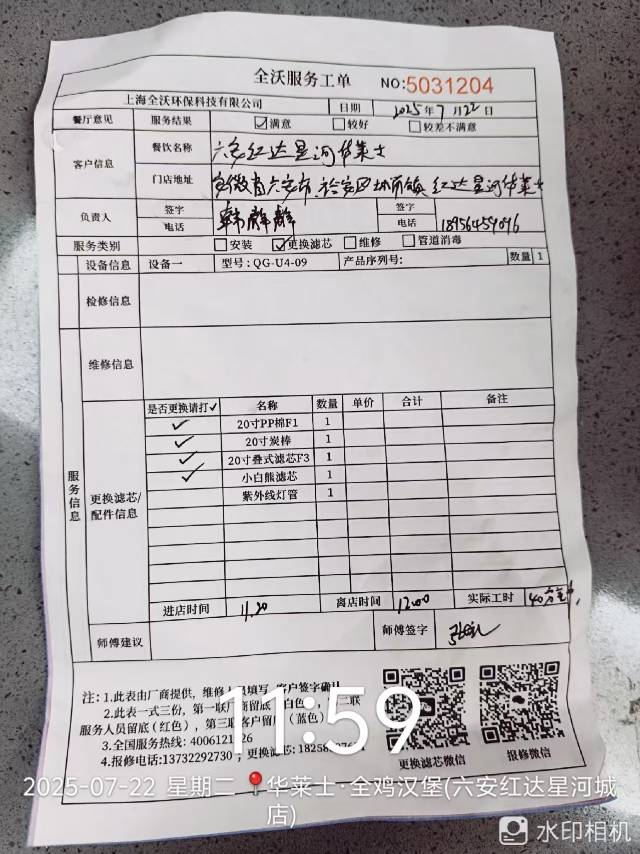 全沃服务工单 NO:5031204
上海全沃环保科技有限公司 日期 2025年7月22日
餐厅意见 服务结果 ☑满意 □较好 □较差不满意
客户信息 餐饮名称 六安红达星河华莱士
门店地址 安徽省六安市 裕安区城南镇 红达星河华莱士
负责人 签字 签字
电话 电话 18956459096
服务类别 □安装 ☑更换滤芯 □维修 □管道消毒
设备信息 设备一 型号:QG-U4-09 产品序列号: 数量 1
检修信息
维修信息
服务信息
更换滤芯/配件信息
是否更换请打✓ 名称 数量 单价 合计 备注
✓ 20寸PP棉F1 1
✓ 20寸炭棒 1
✓ 20寸叠式滤芯F3 1
✓ 小白熊滤芯 1
紫外线灯管 1
进店时间 11.20 离店时间 12.00 实际工时 40分
师傅建议 师傅签字
注:1.此表由厂商提供,维修 填写 客户签字确认
2.此表一式三份,第一联厂商留底 白色 二联
服务人员留底(红色),第三联客户留 (蓝色)
3.全国服务热线:
4.报修电话:13732292730,更换滤芯:
更换滤芯微信 报修微信
11:59
2025-07-22 星期二 华莱士·全鸡汉堡(六安红达星河城
店)
水印相机